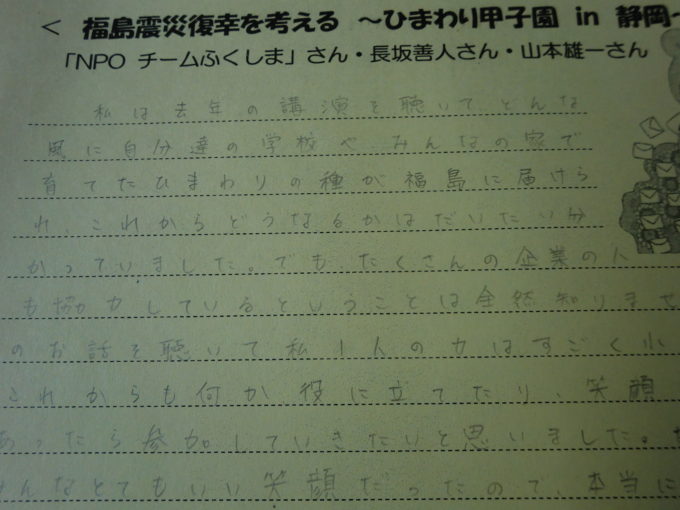 < 福島震災復幸を考える ~ひまわり甲子園 in 静岡~
「NPO チームふくしま」さん・長坂善人さん・山本雄一さん
私は去年の講演を聴いてどんな
風に自分達の学校や みんなの家で
育てたひまわりの種が福島に届けら
れ、これからどうなるかはだいたい分
かっていました。でもたくさんの企業の人
も協力しているということは全然知りませ
のお話を聴いて私1人の力はすごく小
これからも何か役に立てたり、笑顔
あったら参加していきたいと思いました。
んなとてもいい笑顔だったので、本当に